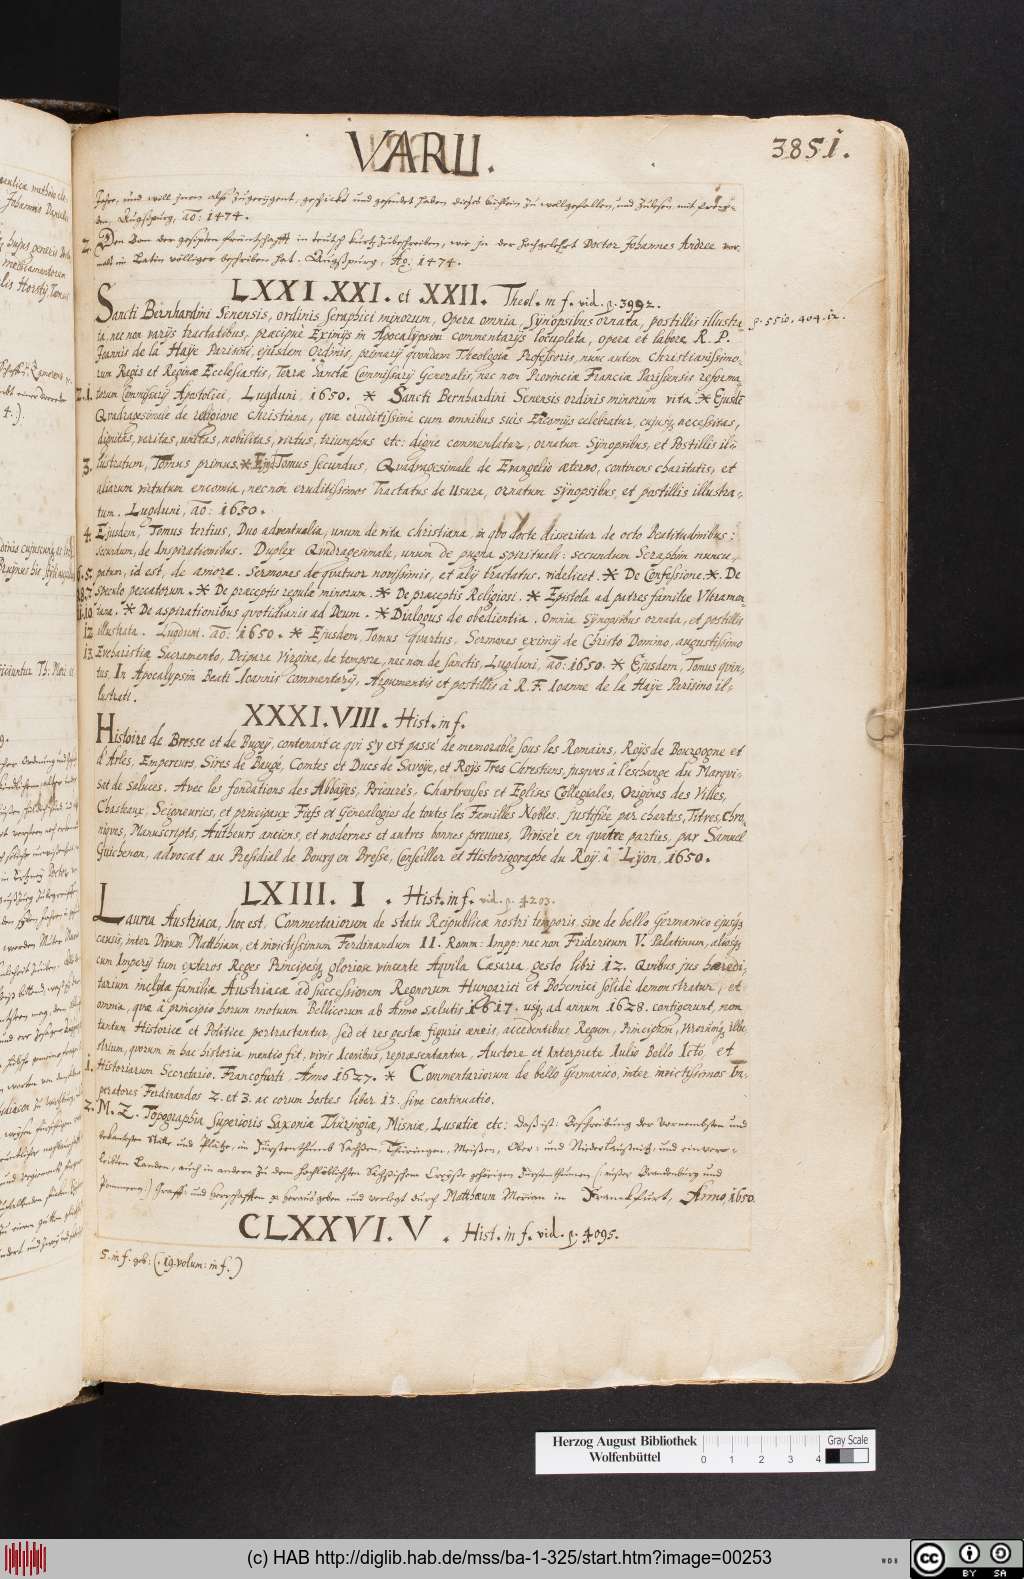 VARII.
3851.
den, Augspurg, ao: 1474.
2. Den Bom der gesipten fründtschafft in teutsch kurtz Zubeschreiben, wie jn der hochgelehrt Doctor Johannes Andree vor
mals in Latin völliger beschriben hat. Augspurg, Ao. 1474.
LXXI.XXI. et .XXII. Theol. in f. vid. p. 3992.
Sancti Bernhardini Senensis, ordinis Seraphici minorum, Opera omnia, Synopsibus ornata, postillis illustra- p. 5510. 404. 12.
ta, nec non varijs tractatibus, præcipuè Eximijs in Apocalypsim commentarijs locupleta, opera et labore R. P.
Joannis de la Haye Parisini, ejusdem Ordinis, primarij quondam Theologiæ Professoris, nunc autem Christianissimo-
rum Regis et Reginæ Ecclesiastis, Terræ Sanctæ Commissarij Generalis, nec non Provinciæ Franciæ Parisiensis reforma-
2.1. torum Commissarij Apostolici, Lugduni. 1650. * Sancti Bernhardini Senensis ordinis minorum vita. * Ejusdē
Quadragesimale de religione christiana, quæ eruditissimè cum omnibus suis Encomijs celebratur, cujusq; necessitas,
dignitas, veritas, unitas, nobilitas, virtus, triumphus etc: dignè commendatur, ornatum Synopsibus, et Postillis il-
3. lustratum, Tomus primus. * Ejusd. Tomus secundus, Quadragesimale de Evangelio æterno, continens charitatis, et
aliarum virtutum encomia, nec non eruditissimos Tractatus de Usura, ornatum synopsibus, et postillis illustra-
tum. Lugduni, ao: 1650.
4. Ejusdem, Tomus tertius, Duo adventualia, unum de vita christiana, in quo doctè disseritur de octo Beatitudinibus:
secundum, de Inspirationibus. Duplex Quadragesimale, unum de pugna spirituali: secundum Seraphim nuncu-
6.5. patum, id est, de amore. Sermones de quatuor novissimis, et alij tractatus. videlicet. * De Confessione. * De
8.7. Speculo peccatorum. * De præceptis regulæ minorum. * De præceptis Religiosi. * Epistola ad patres familiæ Vltramon-
11.10 tanæ. * De aspirationibus quotidianis ad Deum. * Dialogus de obedientia. Omnia Synopsibus ornata, et postillis
12 illustrata. Lugduni. ao: 1650. * Ejusdem, Tomus quartus, Sermones eximij de Christo Domino, augustissimo
13 Eucharistiæ Sacramento, Deipara Virgine, de tempore, nec non de sanctis, Lugduni, ao: 1650. * Ejusdem, Tomus quin-
tus. In Apocalypsim Beati Ioannis commentarij. Argumentis et postillis à R. F. Ioanne de la Haye Parisino il-
lustrati.
XXXI.VIII. Hist. in f.
Histoire de Bresse et de Bugey, contenant ce qui s'y est passé de memorable sous les Romains, Roys de Bourgogne et
d'Arles, Empereurs, Sires de Baugé, Comtes et Ducs de Savoye, et Roys Tres Chrestiens, jusques à l'eschange du Marqui-
sat de Saluces. Avec les fondations des Abbayes, Prieurés, Chartreuses et Eglises Collegiales, Origines des Villes,
Chasteaux, Seigneuries, et principaux Fiefs et Genealogies de toutes les Familles Nobles. Justifiée par chartes, Titres, Chro-
niques, Manuscripts, Autheurs anciens, et modernes et autres bonnes preuues, Divisée en quatre parties, par Samuel
Guichenon, advocat au Presidial de Bourg en Bresse, Conseiller et Historiographe du Roy. à Lyon, 1650.
LXIII. I . Hist. in f. vid. p. 4203.
Laurea Austriaca, hoc est, Commentariorum de statu Reipublicæ nostri temporis, sive de bello Germanico ejusq;
causis, inter Divum Matthiam, et invictissimum Ferdinandum II. Romm: Impp: nec non Fridericum V. Palatinum, aliosq;
cum Imperij tum exteros Reges Principesq; gloriosè vincente Aquila Cæsarea, gesto libri 12. Quibus jus hæredi-
tarium inclytæ familiæ Austriacæ ad successionem Regnorum Hungarici et Bohemici solidè demonstratur, et
omnia, quæ à principio horum motuum Bellicorum ab Anno salutis 1617. usq; ad annum 1628. contigerunt, non
tantum Historicè et Politicè pertractantur, sed et res gestæ figuris æneis, accedentibus Regum, Principum, Virorumq; illu-
strium, quorum in hac historia mentio fit, vivis Iconibus, repræsentantur, Auctore et Interprete Iulio Bello Icto, et
1. Historiarum Secretario. Francofurti, Anno 1627. * Commentariorum de bello Germanico, inter invictissimos Im-
peratores Ferdinandos 2. et 3. ac eorum hostes liber 13. sive continuatio.
2. M. Z. Topographia Superioris Saxoniæ Thüringiæ, Misniæ, Lusatiæ etc: Daß ist: Beschreibung der Vornembsten und
bekantesten Stätte und Plätze, in Fürstenthumb Sachsen, Thüringen, Meißen, Ober: und Niederlaußnitz, und einver-
leibten Landen, auch in andern zu dem hochlöblichsten Sächsischen Creyße gehörigen Fürstenthümen (:außer Brandenburg und
Pommern:) Graff: und herrschafften pp heraus gegeben und verlegt durch Matthæum Merian in Franckfurt, Anno, 1650.
CLXXVI.V . Hist. in f. vid. p. 4095.
5. in f. geb: (.19. volum: in f.)
Herzog August Bibliothek
Wolfenbüttel
0 1 2 3 4
Gray Scale
(c) HAB http://diglib.hab.de/mss/ba-1-325/start.htm?image=00253
WDB
cc BY SA